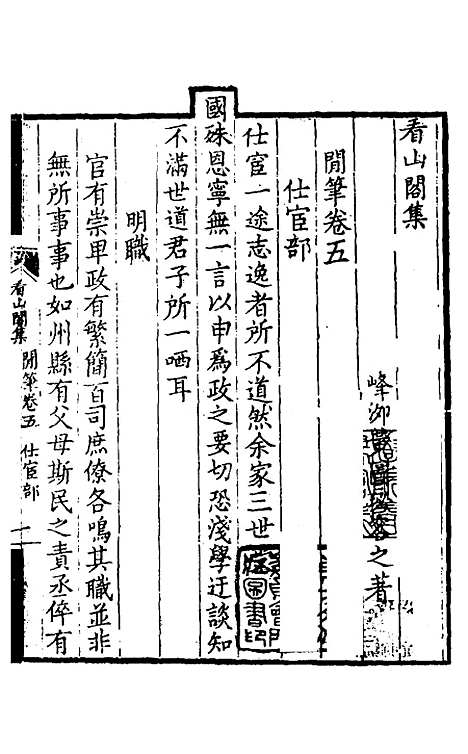 看山閣集
峰泖
之著
閒筆卷五
仕宦部
仕宦一途志逸者所不道然余家三世
國殊恩寧無一言以申為政之要切恐淺學迂談知
不滿世道君子所一哂耳
明職
官有崇卑政有繁簡百司庶僚各鳴其職並非
無所事事也如州縣有父母斯民之責丞倅有
看山閣集 閒筆卷五 仕宦部 一